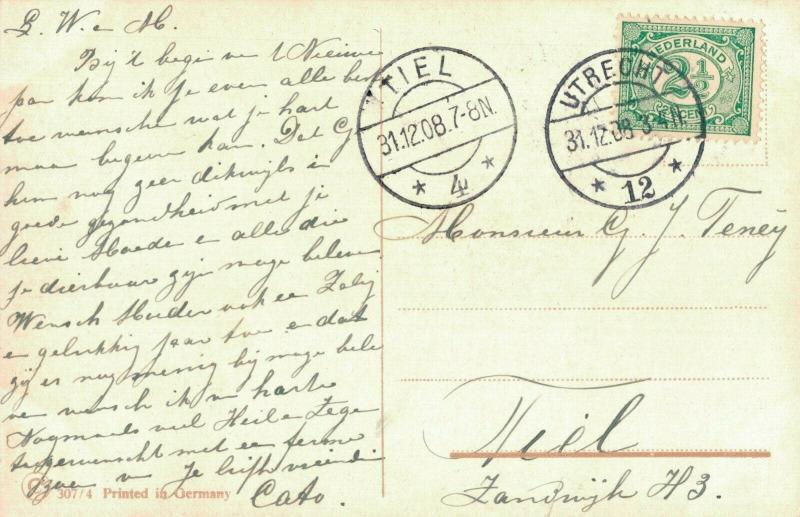 L. W. e M.
Bij 't begin van 't Nieuwe
jaar kan ik je even alle beste
toe wensche wat je hart
maar begeren kan. Dat G
hem nog zeer dikwijls in
goede gezondheid met je
lieve Moeder e alle die
je dierbaar zijn mage beleven
Wensch Moeder ook ee Zalig
e gelukkig jaar toe e dat
zij er nog menig bij mage bele
ve wensch ik va harte
Nogmaals veel Heil e Zege
toegewenscht met ee ferme
v Je liefh vriendi
Cato.
307/4 Printed in Germany
TIEL
31.12.08.7-8N.
* 4 *
UTRECHT
31.12.08 3-4N.
* 12 *
NEDERLAND
2½
CENT
Monsieur G. J. Teneÿ
Tiel
Zandwijk H3.